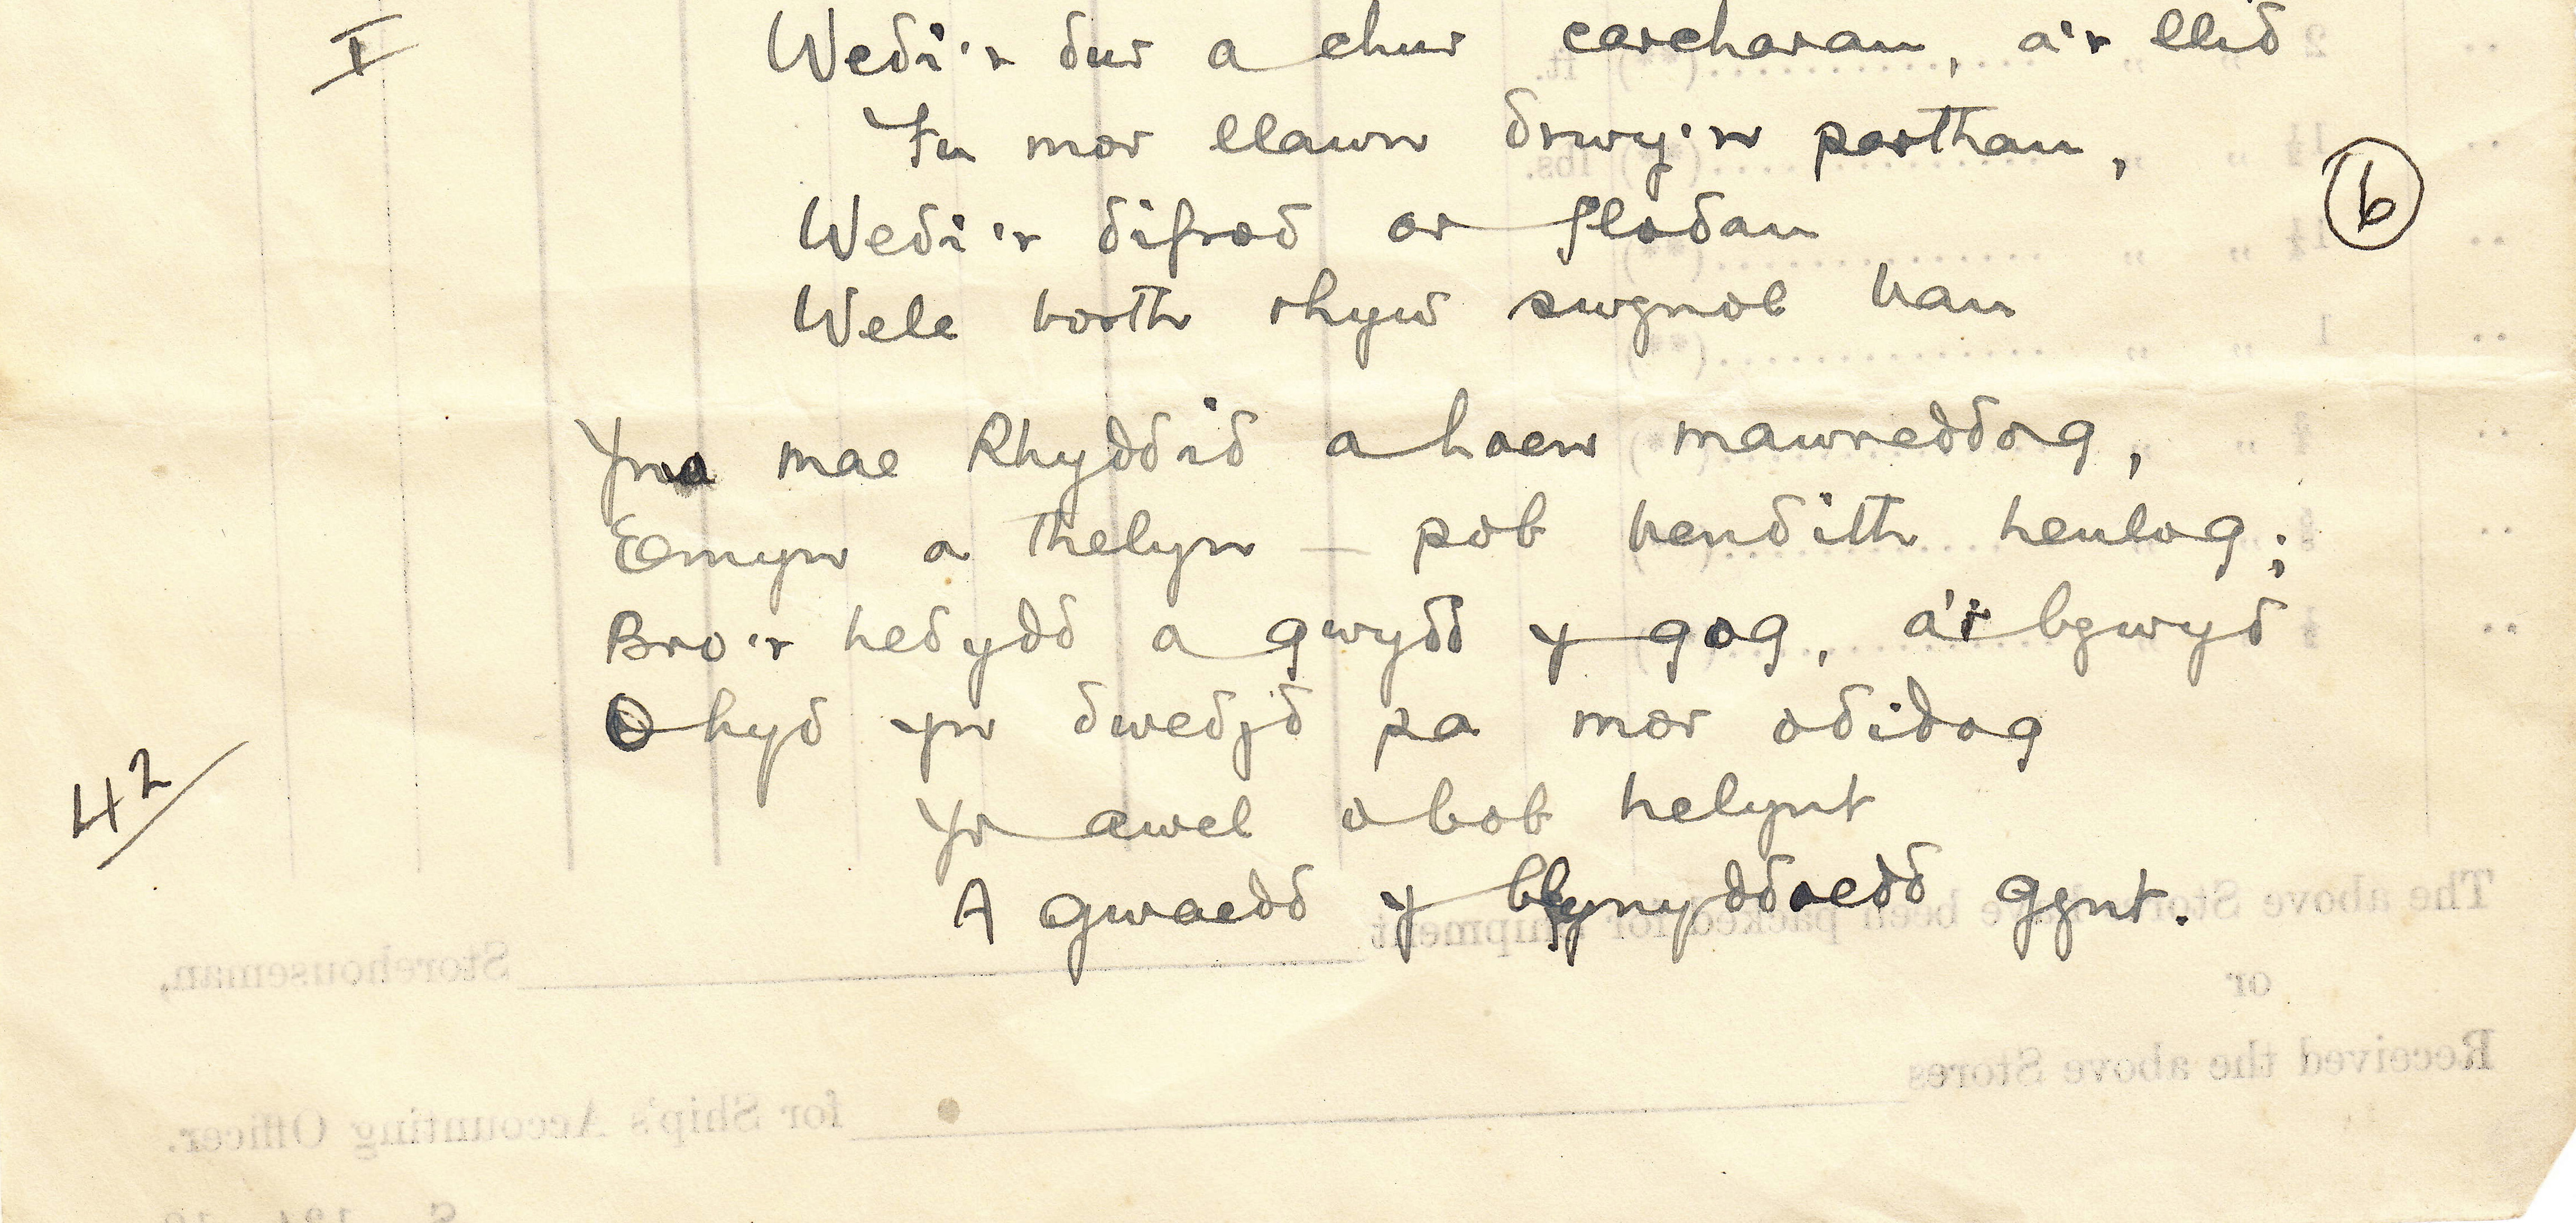 I
Wedi'r dur a chur carcharau, a'r llid
Fu mor llawn drwy'n parthau,
6
Wedi'r difrod ar flodau
Wele borth rhyw swynol bau
Yma mae Rhyddid a hoen mawreddog,
Emyn a thelyn – pob bendith heulog;
Bro'r hedydd a gwŷdd y gog, a'r bywyd
O hyd yn dwedyd pa mor odidog
42
Yr awel o bob helynt
A gwaedd y blynyddoedd gynt.
The above Stores have been packed for shipment
Storehouseman,
or
Received the above Stores
for Ship's Accounting Officer.